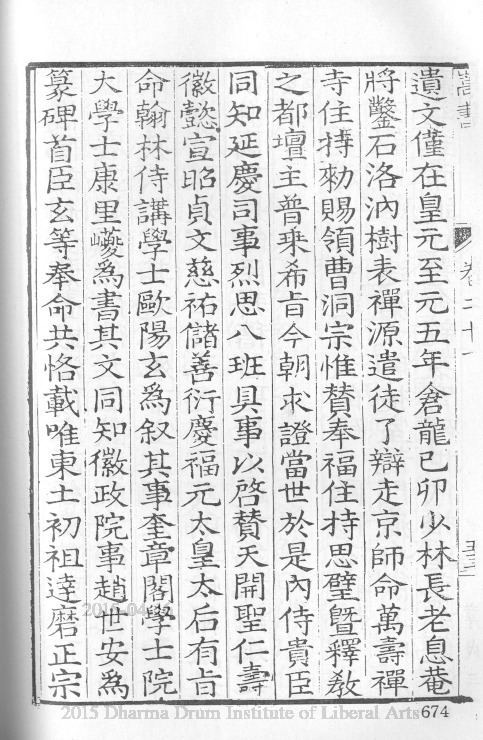 嵩書
卷二十一
遺文僅在皇元至元五年倉龍己卯少林長老息菴
將鑿石洛汭樹表禪源遣徒了辯走京師命萬壽禪
寺住持勑賜領曹洞宗惟賛奉福住持思璧暨釋教
之都壇主普乗希旨今朝求證當世於是內侍貴臣
同知延慶司事烈思八班具事以啓賛天開聖仁壽
徽懿宣昭貞文慈祐儲善衍慶福元太皇太后有旨
命翰林侍講學士歐陽玄為叙其事奎章閣學士院
大學士康里巙為書其文同知徽政院事趙世安為
篆碑首臣玄等奉命共恪載唯東土初祖達磨正宗
2015 Dharma Drum Institute of Liberal Arts
674